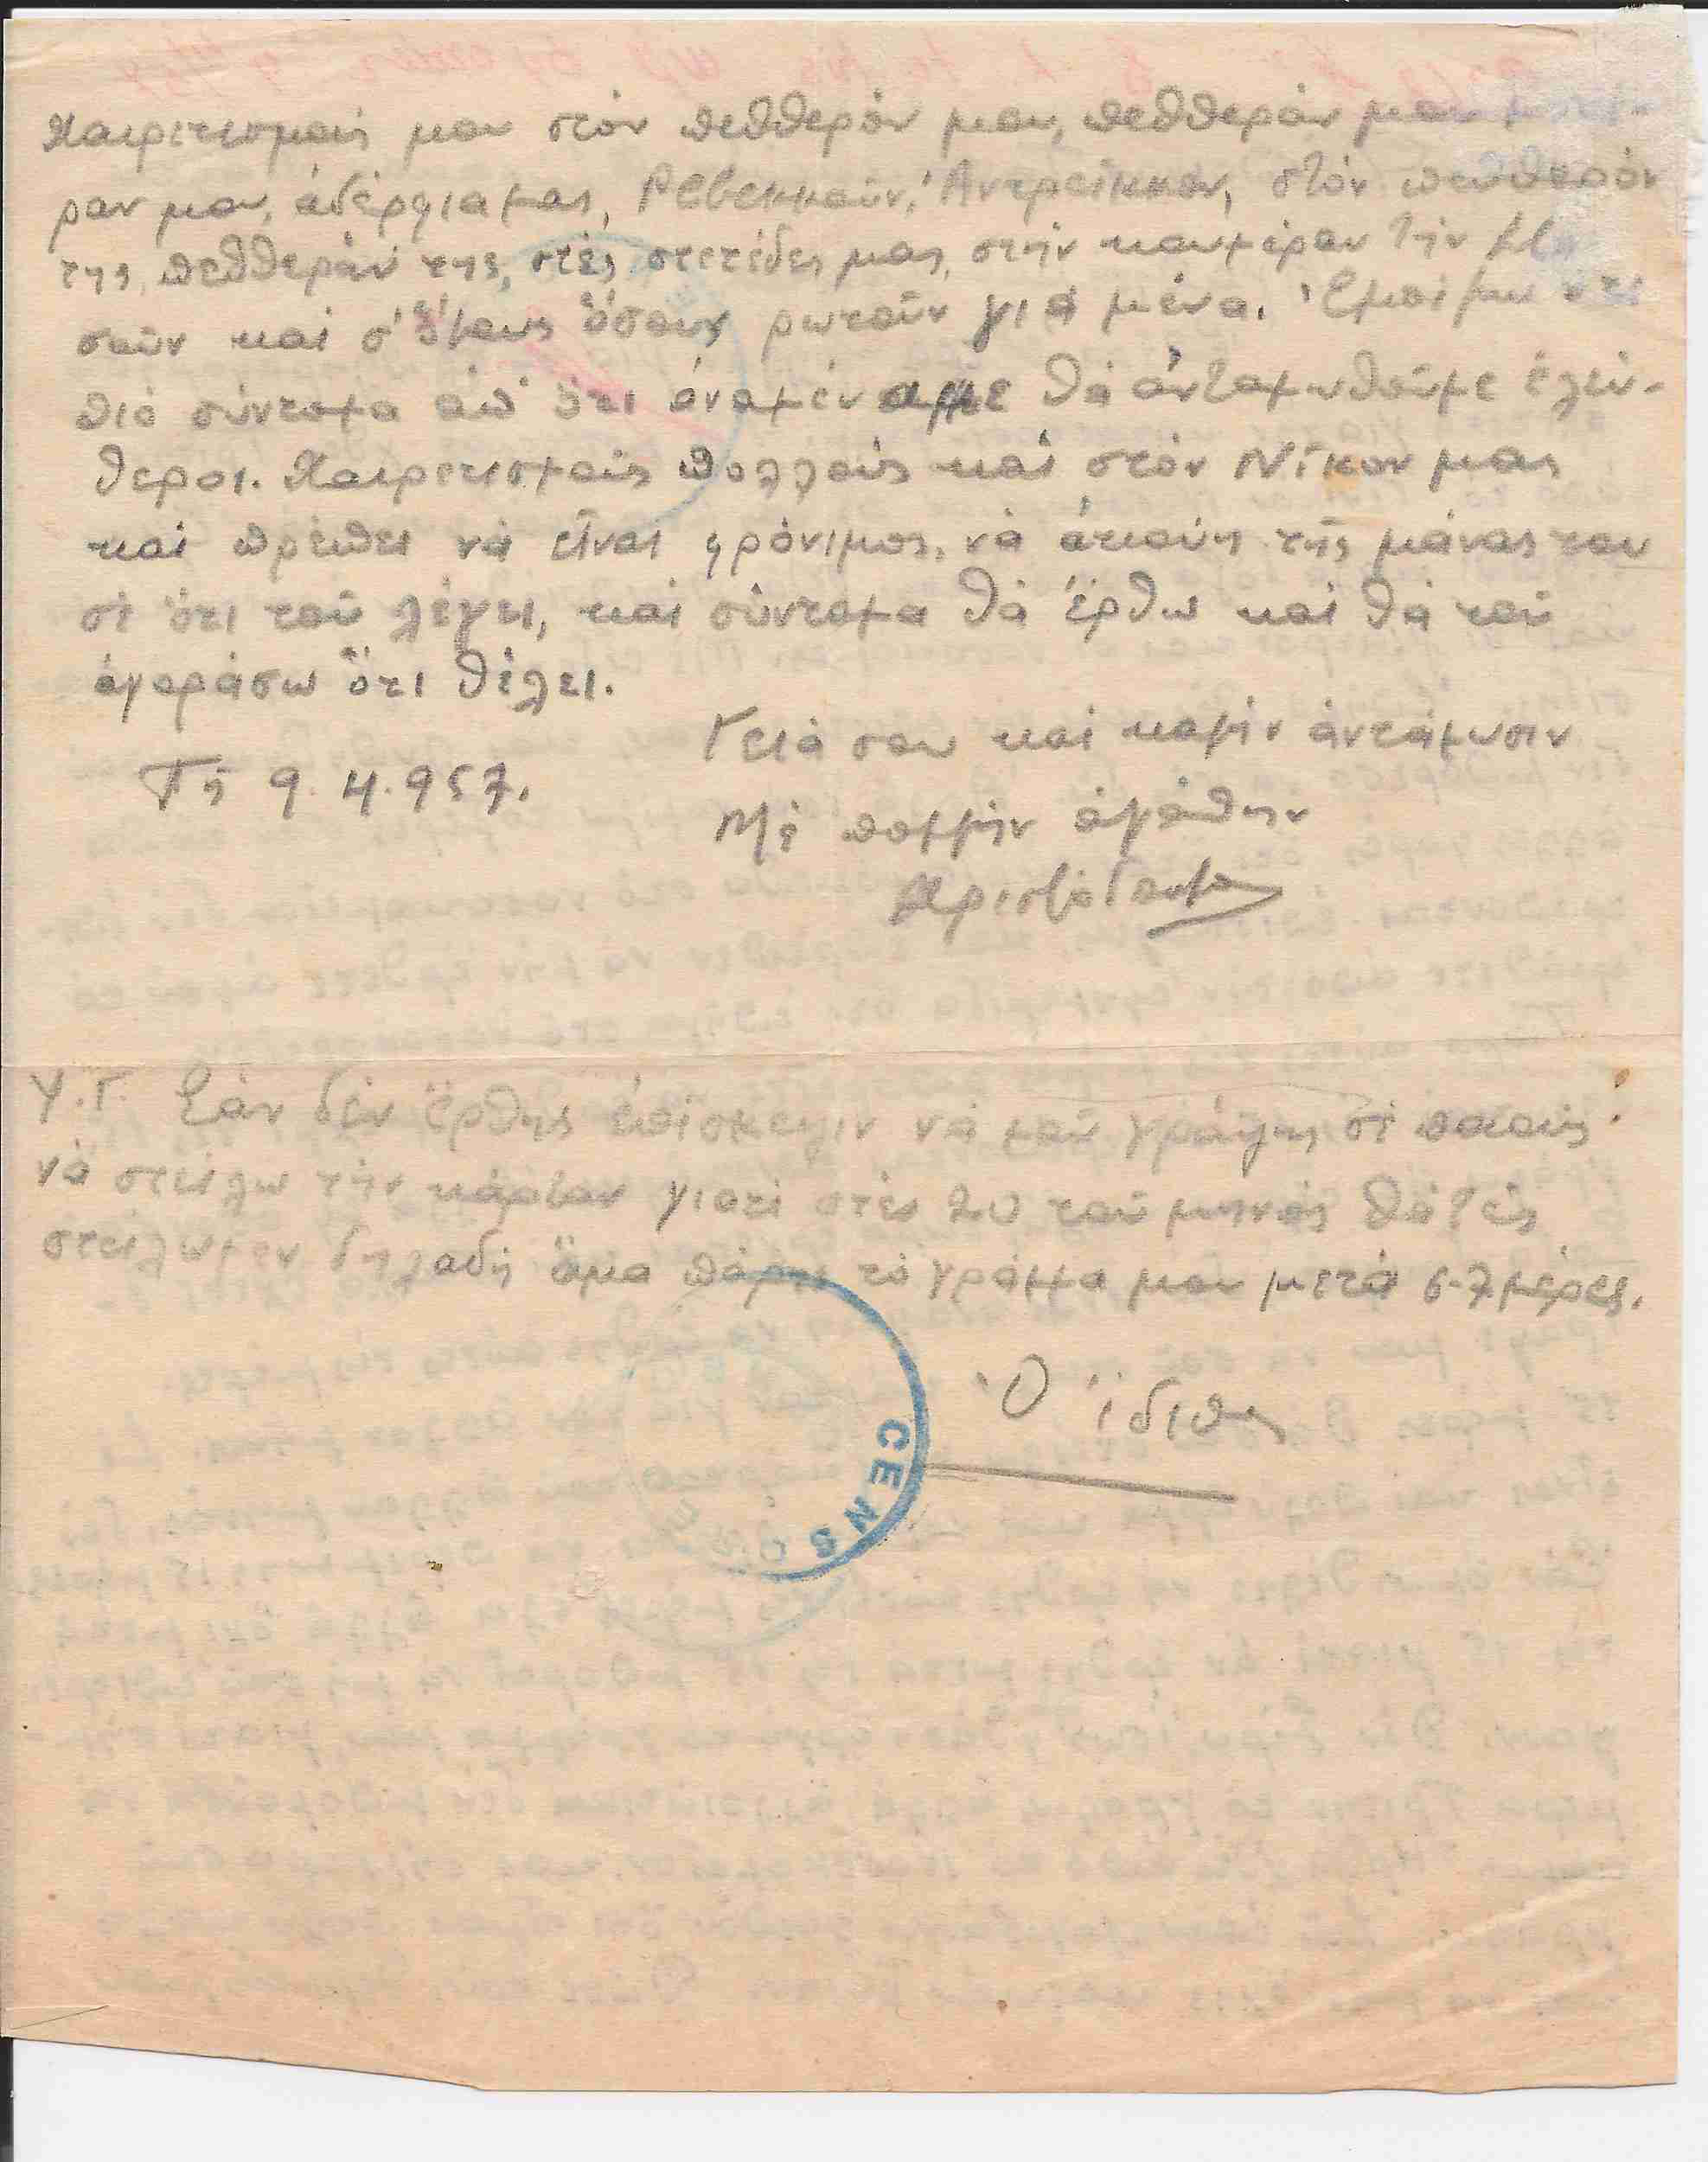 Χαιρετισμούς μου στόν πεθθερόν μου, πεθθεράν μου
ραν μου, ἀδέρφια μας, Ρεβεκκούν, Ἀντρείκκον, στόν πεθθερόν
της, πεθθεράν της, στές στετέδες μας, στήν κουμέραν τήν
σοῦν καί σ' ὅλους ὅσους ρωτοῦν γιά μένα. Ἐλπίζω ὅτι
πιό σύντομα ἀπ' ὅτι ἀναμέναμε θά ἀνταμωθοῦμε ἐλεύ-
θεροι. Χαιρετισμούς πολλούς καί στόν Νῖκον μας
καί πρέπει νά εἶναι φρόνιμος, νά ἀκούῃ τῆς μάνας του
σέ ὅτι τοῦ λέγει, καί σύντομα θά ἔρθω καί θά τοῦ
ἀγοράσω ὅτι θέλει.
Γειά σου καί καλήν ἀντάμωσιν
Τῇ 9.4.957.
Μέ πολλήν ἀγάπην
Υ.Γ. Ἐάν δέν ἔρθης ἐπίσκεψιν νά μοῦ γράψῃς σέ ποιούς
νά στείλω τήν κάρταν γιατί στές 20 τοῦ μηνός θά τές
στείλωμεν δηλαδή ἅμα πάρῃς τό γράμμα μου μετά 6-7 μέρες.
Ὁ ἴδιος
CENSO